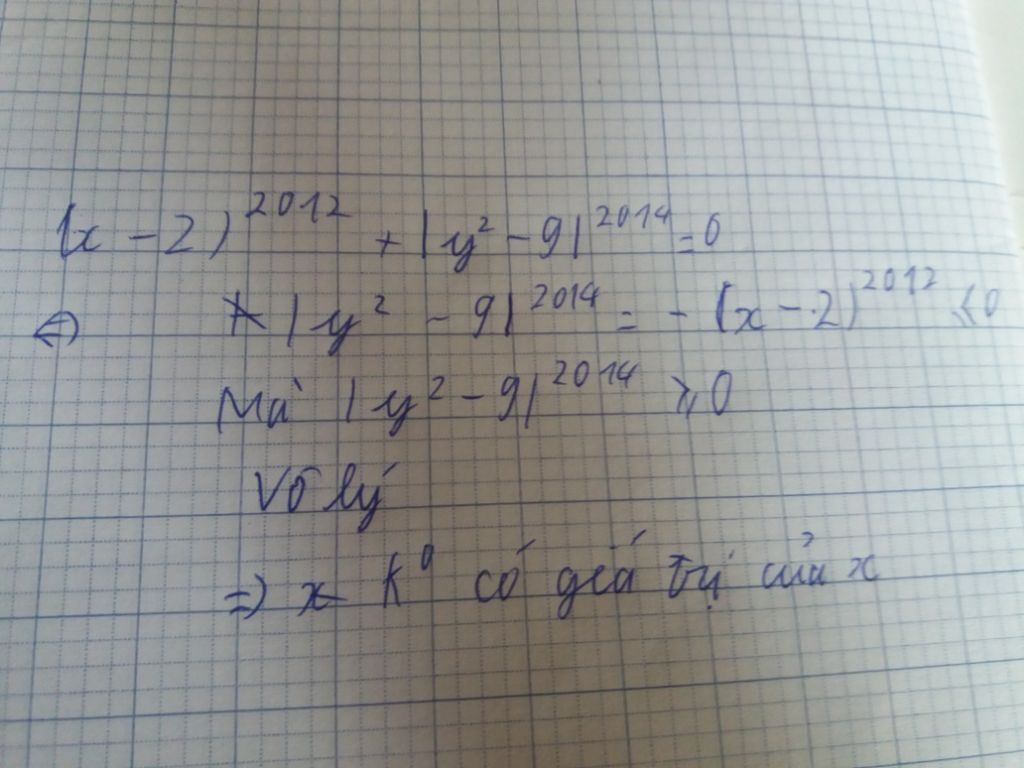 (x - 2)^2012 + |y² - 9|^2014 = 0
⇔ |y² - 9|^2014 = - (x - 2)^2012 ≤ 0
Mà |y² - 9|^2014 ≥ 0
Vô lý
⇒ x k⁰ có giá trị của x